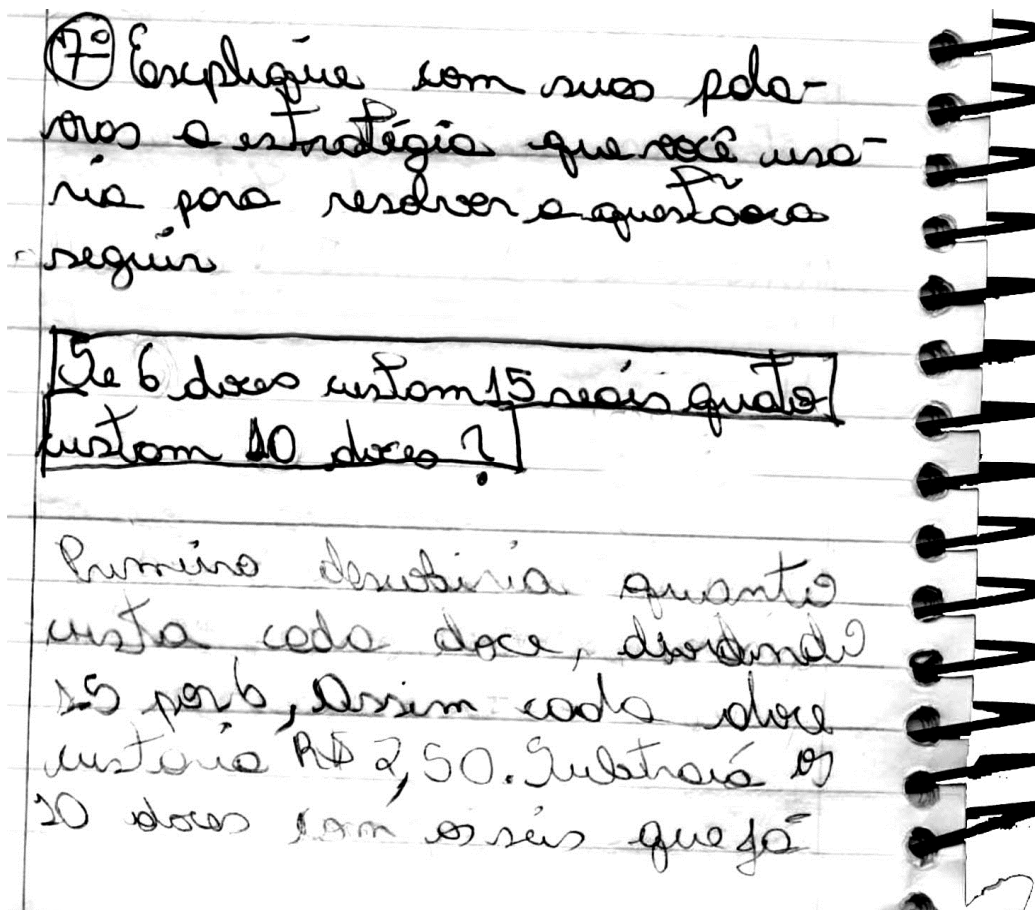 7º Explique com suas pala-
vras a estratégia que você usa-
ria para resolver a questão a
seguir
Se 6 doces custam 15 reais quato
custam 10 doces?
Primeiro descobriria quanto
custa cada doce, dividindo
15 por 6, Assim cada doce
custaria R$ 2,50. Subtrairá os
10 doces com os seis que já